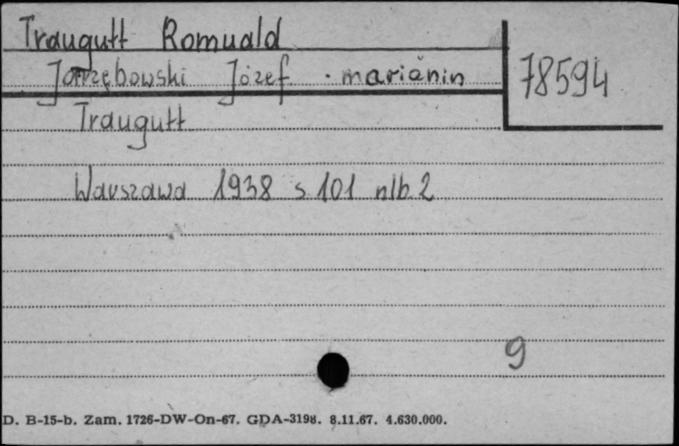 Traugutt Romuald
Jarzębowski Józef - marianin
78594
Traugutt
Warszawa 1938 s. 101 nlb. 2
9
D. B-15-b. Zam. 1726-DW-On-67. GDA-3198. 8.11.67. 4.630.000.